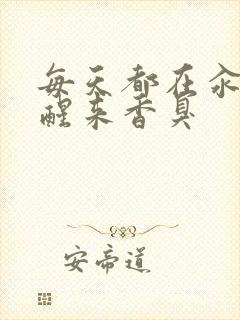 每天都在汆
醒来香臭
安帝道